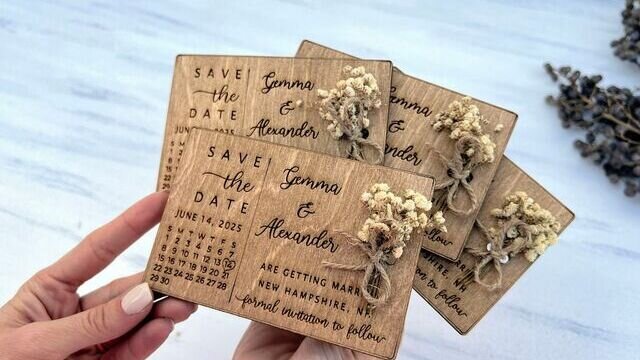 SAVE
the
DATE
JUNE 14, 2025
S M T W T F S
1 2 3 4 5 6 7
8 9 10 11 12 13 14
15 16 17 18 19 20 21
22 23 24 25 26 27 28
29 30
Gemma
&
Alexander
ARE GETTING MARR
NEW HAMPSHIRE, NH
formal invitation to follow
SAVE
the
DATE
JUNE 14, 2025
Gemma
&
Alexander
Gemma
&
Alexander
follow
formal invitation to follow